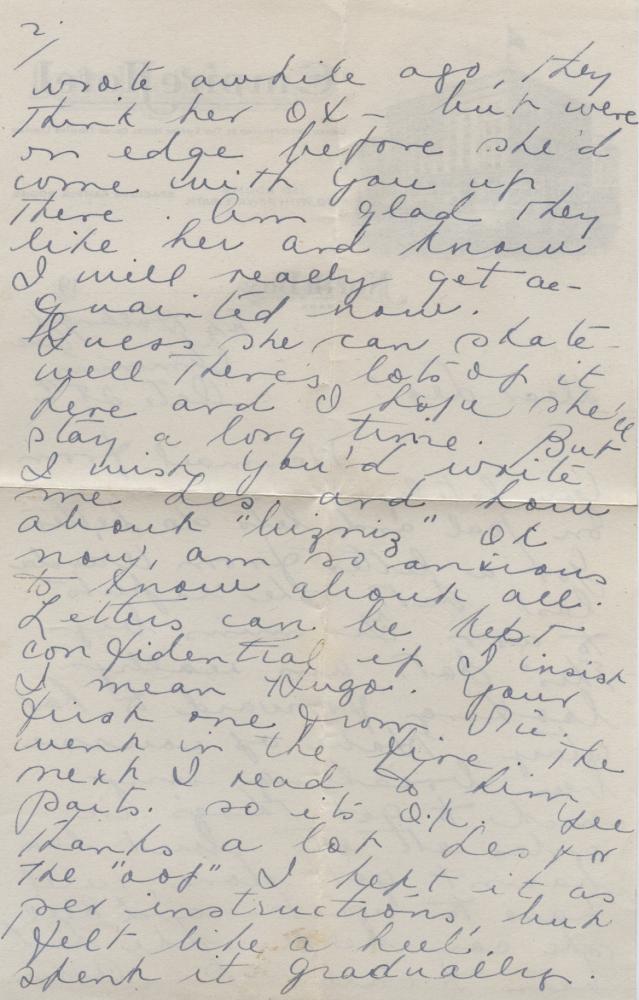 2/
wrote awhile ago, they
think her OK - but were
on edge before she'd
come with you up
there. Am glad they
like her and know
I will really get ac-
quainted now.
Guess she can skate -
well there's lots of it
here and I hope she'll
stay a long time. But
I wish you'd write
me Les. and how
about "bizniz" OK
now, am so anxious
to know about all.
Letters can be kept
confidential if I insist
I mean Hugo. Your
first one from Vic.
went in the fire. The
next I read to him
parts. so its O.K. Gee
thanks a lot Les for
the "oof" I kept it as
per instructions, but
felt like a heel.
spent it gradually.